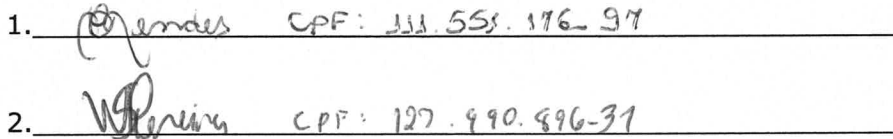 1. Mendes CPF: 111.551.176-97
2. WPereira CPF: 127.990.896-31